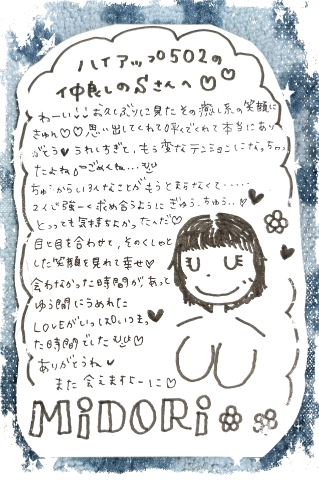 ハイアップ502の
仲良しのSさんへ♡♡
わーい!!お久しぶりに見たその癒し系の笑顔に
きゅん♡♡思い出してくれて呼んでくれて本当にあり
がとう♥うれしすぎて、もう変なテンションになっちゃっ
たよね ごめんね…
ちゅーからいろんなことがもうとまらなくて……
2人で強ーく求め合うようにぎゅう、ちゅう…♥
とっっても気持ちよかったんだ♡
目と目を合わせて、そのくしゃっと
した笑顔を見れて幸せ♡
会わなかった時間があって
ゆう間にうめれた
LOVEがいっぱいつまっ♥
た時間でした
ありがとうね♥
また会えますよーに♡
MiDORi